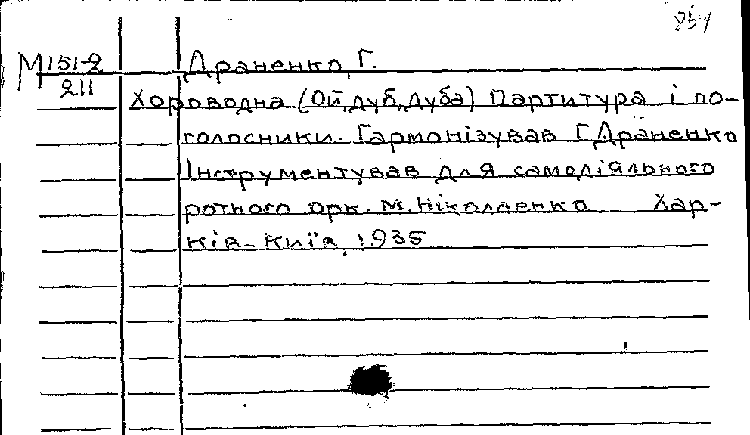 851
М 151-2
211
Драненко, Г.
Хороводна (Ой, дуб, дуба) Партитура і по-
голосники. Гармонізував Г. Драненко
Інструментував для самодіяльного
ротного орк. М. Ніколаєнко Хар-
ків-Київ, 1935